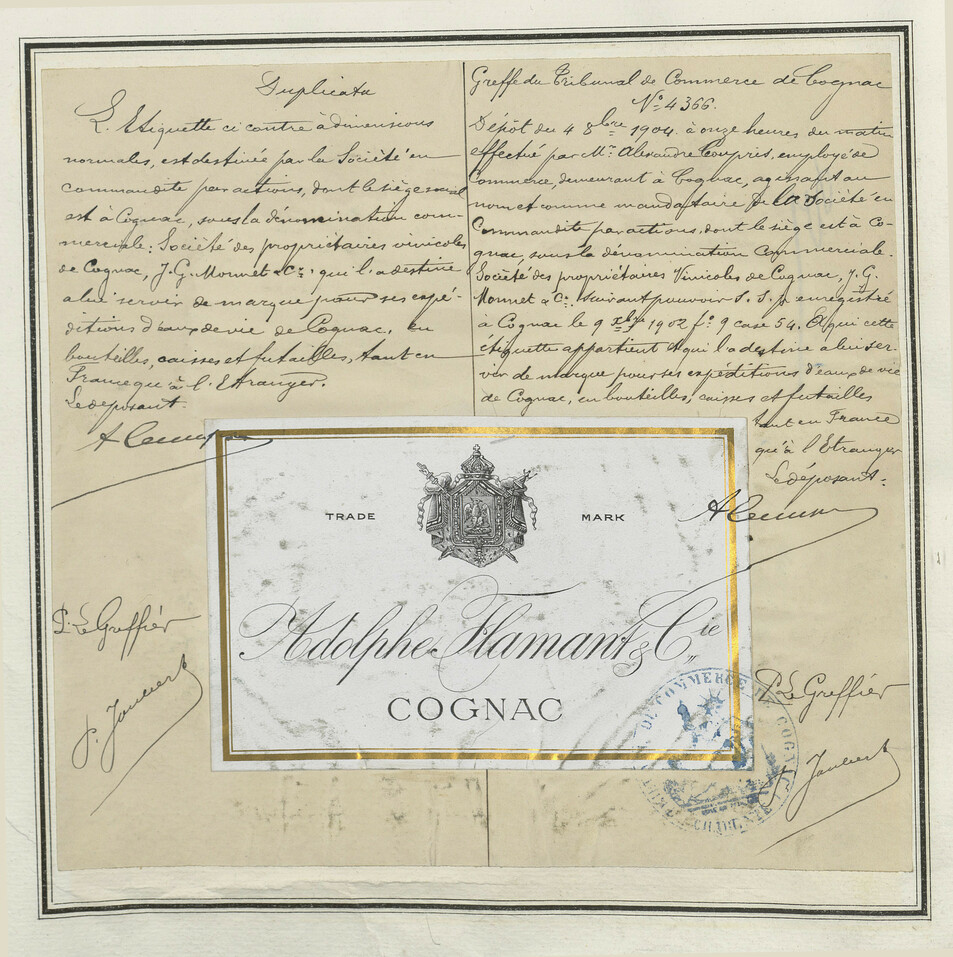 Duplicata
L'Etiquette ci contre à dimensions
normales, est destinée par la Société en
commandite par actions, dont le siège social
est à Cognac, sous la dénomination com-
merciale: Société des propriétaires vinicoles
de Cognac, J. G. Monnet & Cie. qui l'a destine
à lui servir de marque pour ses expé-
ditions d'eaux de vie de Cognac, en
bouteilles, caisses et futailles, tant en
France qu'à l'Etranger.
Le déposant.
Greffe du Tribunal de Commerce de Cognac
No. 4366.
Dépot du 4 8bre 1904. à onze heures du matin
effectué par Mr. Alexandre, employé de
Commerce, demeurant à Cognac, agissant au
nom et comme mandataire de la Société en
Commandite par actions, dont le siège est à Co-
gnac, sous la dénomination Commerciale.
Société des propriétaires Vinicoles de Cognac, J. G.
Monnet & Cie. suivant pouvoir S. S. P. enregistré
à Cognac le 9 xbre 1902 fo. 9 case 54. A qui cette
étiquette appartient & qui l'a destine à lui ser-
vir de marque pour ses expéditions d'eaux de vie
de Cognac, en bouteilles, caisses et futailles
tant en France
qu'à l'Etranger
Le déposant.
TRADE MARK
Adolphe Flamant & Cie
COGNAC
P. Le Greffier
P. Le Greffier
DE COMMERCE DE COGNAC
CHARENTE